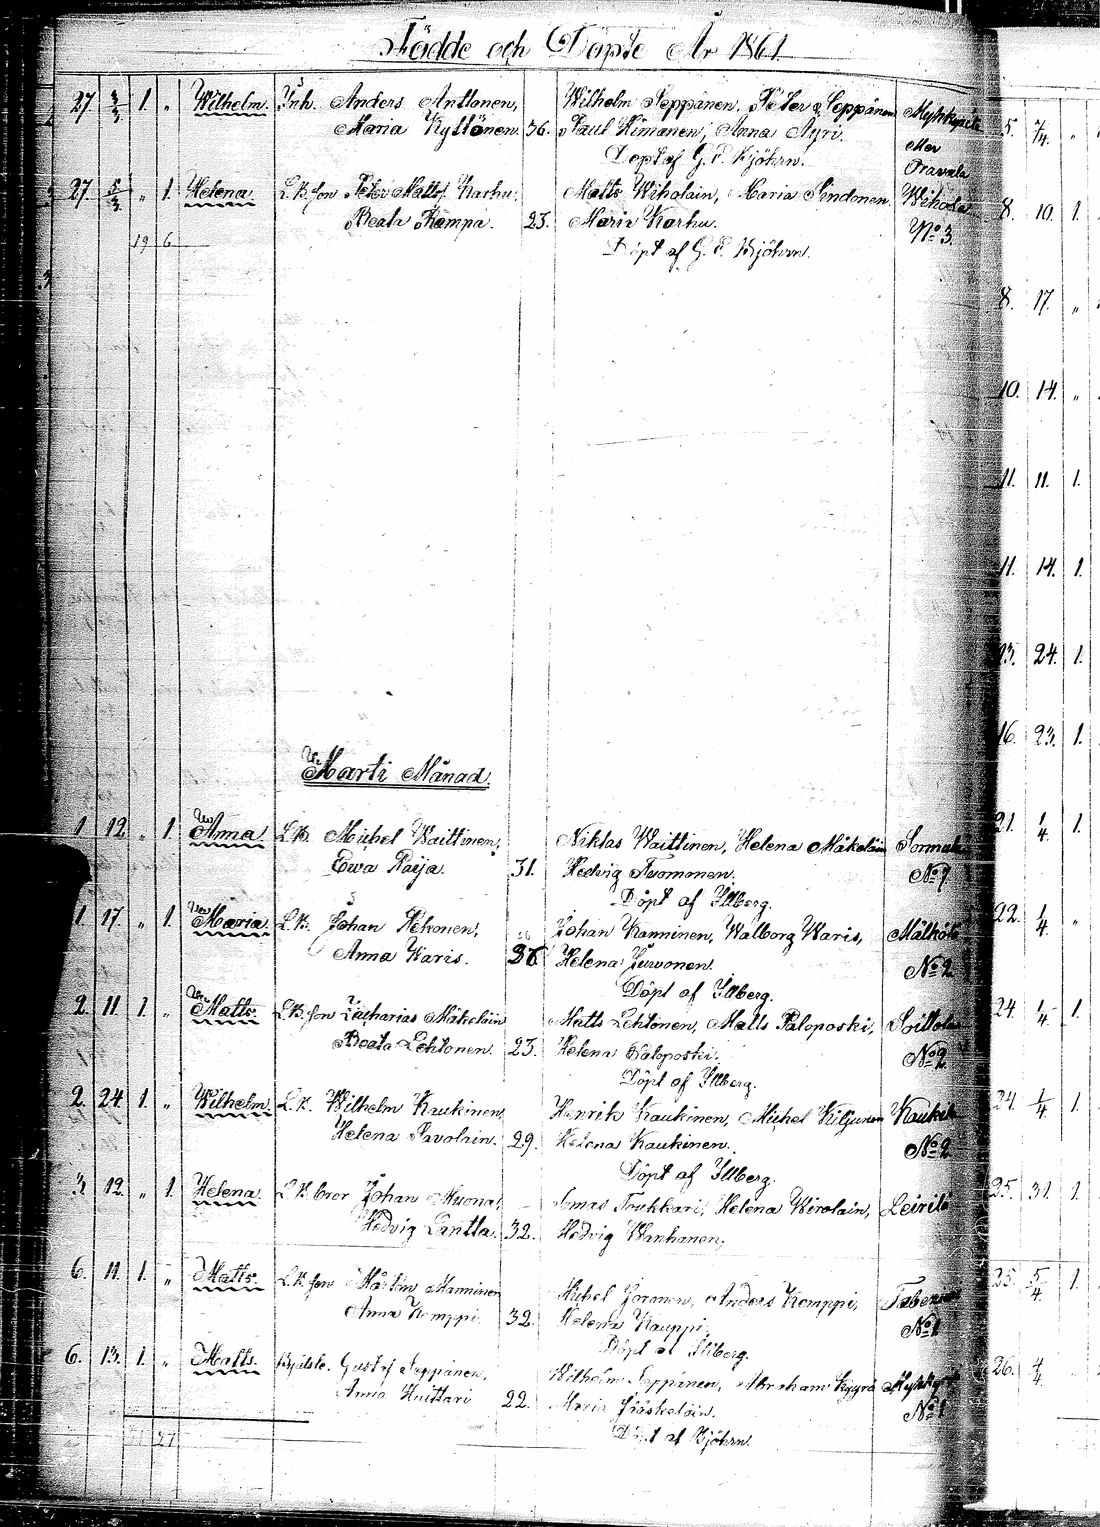 Födde och Döpte År 1861.
27. 3/3 1. „ Wilhelm. Inh. Anders Anttonen, Wilhelm Seppänen, Peter Seppänen
Maria Kyllönen. 36. Paul Himanen, Anna Äyri.
Döpt af G. E. Bjöhrn.
Oravala
27. 5/3 „ 1. Helena L.B. Son Peter Mattsf. Karhu, Matts Wiholain, Maria Sindonen. Wihola
Beata Rampa. 23. Maria Karhu. No 3.
19 6 Döpt af G. E. Bjöhrn.
Marti Månad.
1. 12. „ 1. Anna L.B. Michel Waittinen, Niklas Waittinen, Helena Mäkeläin Sormula
Ewa Raija. 31. Hedvig Tuomonen. No 7
Döpt af Illberg.
1. 17. „ 1. Maria. L.B. Johan Pekonen, Johan Kanninen, Walborg Waris, Mälkölä
Anna Waris. 36 Helena Jurvonen. No 2
Döpt af Illberg.
2. 11. 1. „ Matts. L.B. Son Zacharias Mäkeläin Matts Lehtonen, Matts Paloposki, Soittola
Beata Lehtonen. 23. Helena Paloposki. No 2
Döpt af Illberg.
2. 24. 1. „ Wilhelm. L.B. Wilhelm Kaukinen, Henrik Kaukinen, Michel Kiljunen
Helena Pavolain. 29. Helena Kaukinen. No 2
Döpt af Illberg.
3. 12. „ 1. Helena L.B. bror Johan Muona, Tomas Toukkari, Helena Wirolain, Leirilä
Hedvig Lantta. 32. Hedvig Wanhanen,
6. 11. 1. „ Matts. L.B. Son Mårten Manninen Michel Jormen, Anders Kemppi,
Anna Kemppi. 32. Helena Kauppi, No 1
Döpt af Illberg.
6. 13. 1. „ Matts. Gustaf Seppänen, Wilhelm Seppänen, Abraham Kyyrö
Anna Huittari 22. Maria Jääskeläin. No 1
27 Döpt af Bjöhrn.
5. 7/4. „
8. 10. 1.
8. 17. „
10. 14. „
11. 11. 1.
11. 14. 1.
13. 24. 1.
16. 23. 1.
21. 1/4 1.
22. 1/4 „
24. 1/4 1.
24. 1/4 1.
25. 31. 1.
25. 5/4 1.
26. 4/4